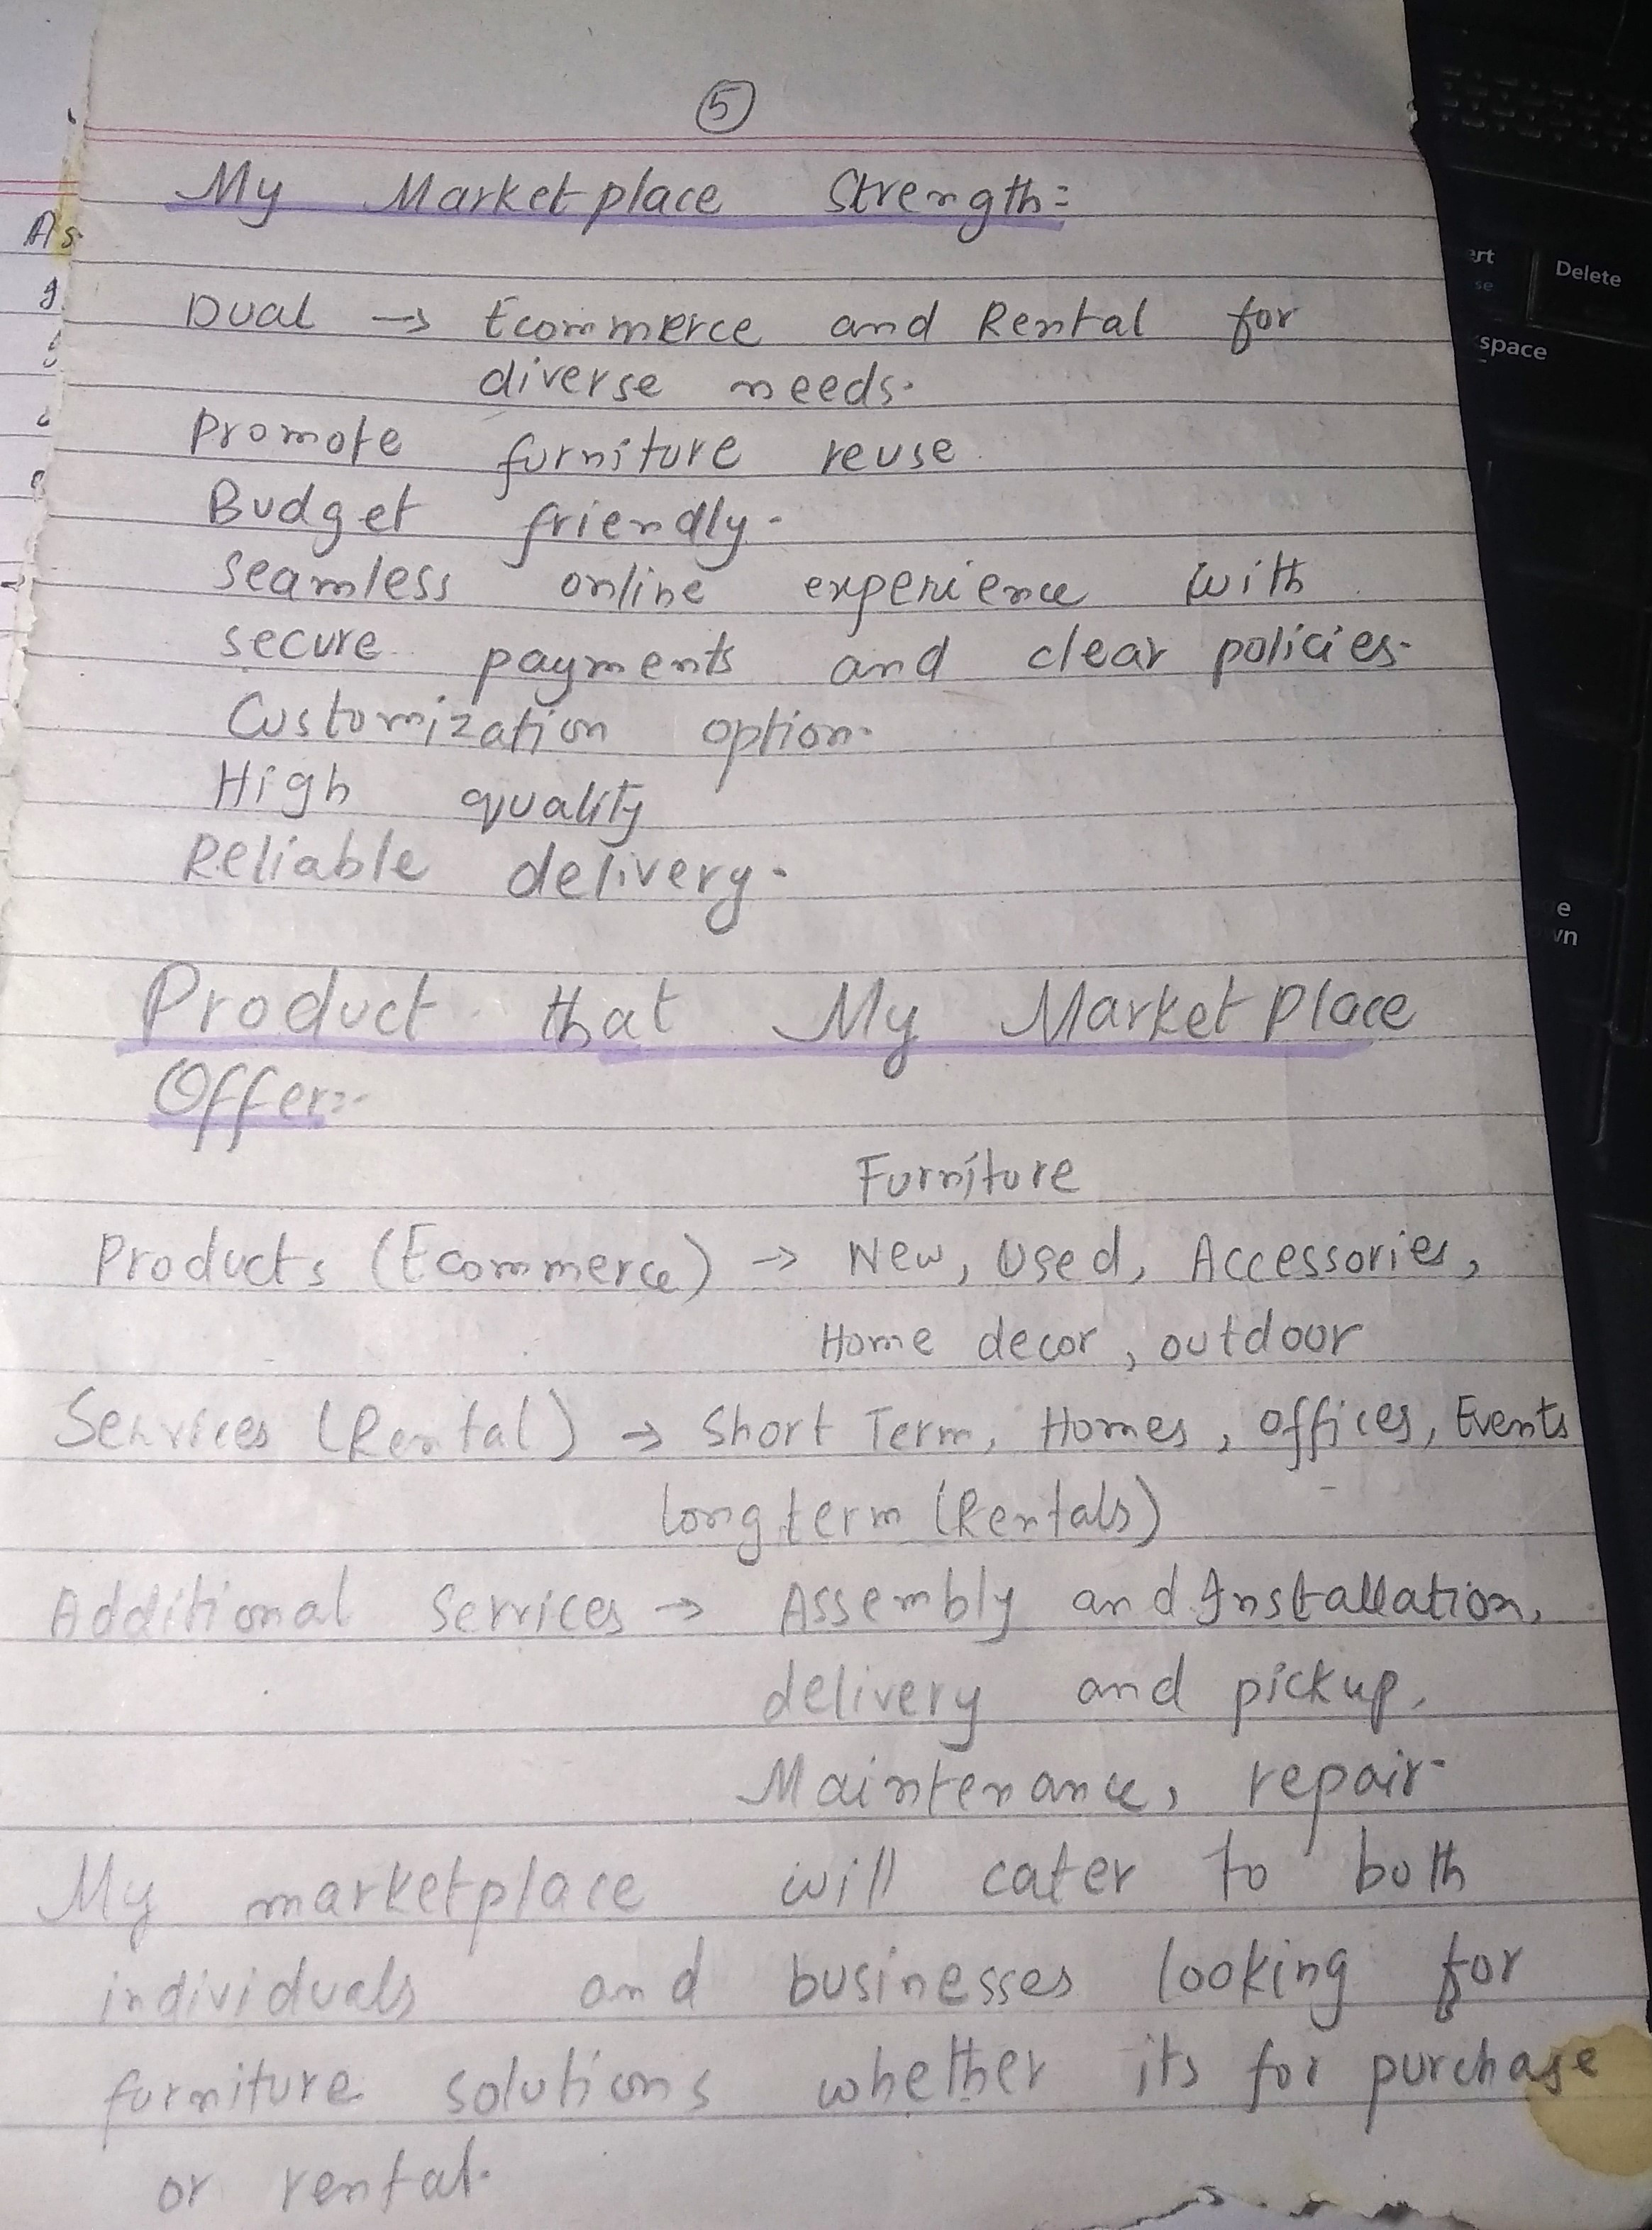 5
My Marketplace Strength:
Dual → Ecommerce and Rental for
diverse needs.
Promote furniture reuse.
Budget friendly.
Seamless online experience with
secure payments and clear policies.
Customization option.
High quality
Reliable delivery.
Product that My Market Place
Offer:-
Furniture
Products (Ecommerce) → New, Used, Accessories,
Home decor, outdoor
Services (Rental) → Short Term, Homes, offices, Events
long term (Rentals)
Additional Services → Assembly and Installation,
delivery and pickup,
Maintenance, repair.
My marketplace will cater to both
individuals and businesses looking for
furniture solutions whether its for purchase
or rental.
As
Delete
space